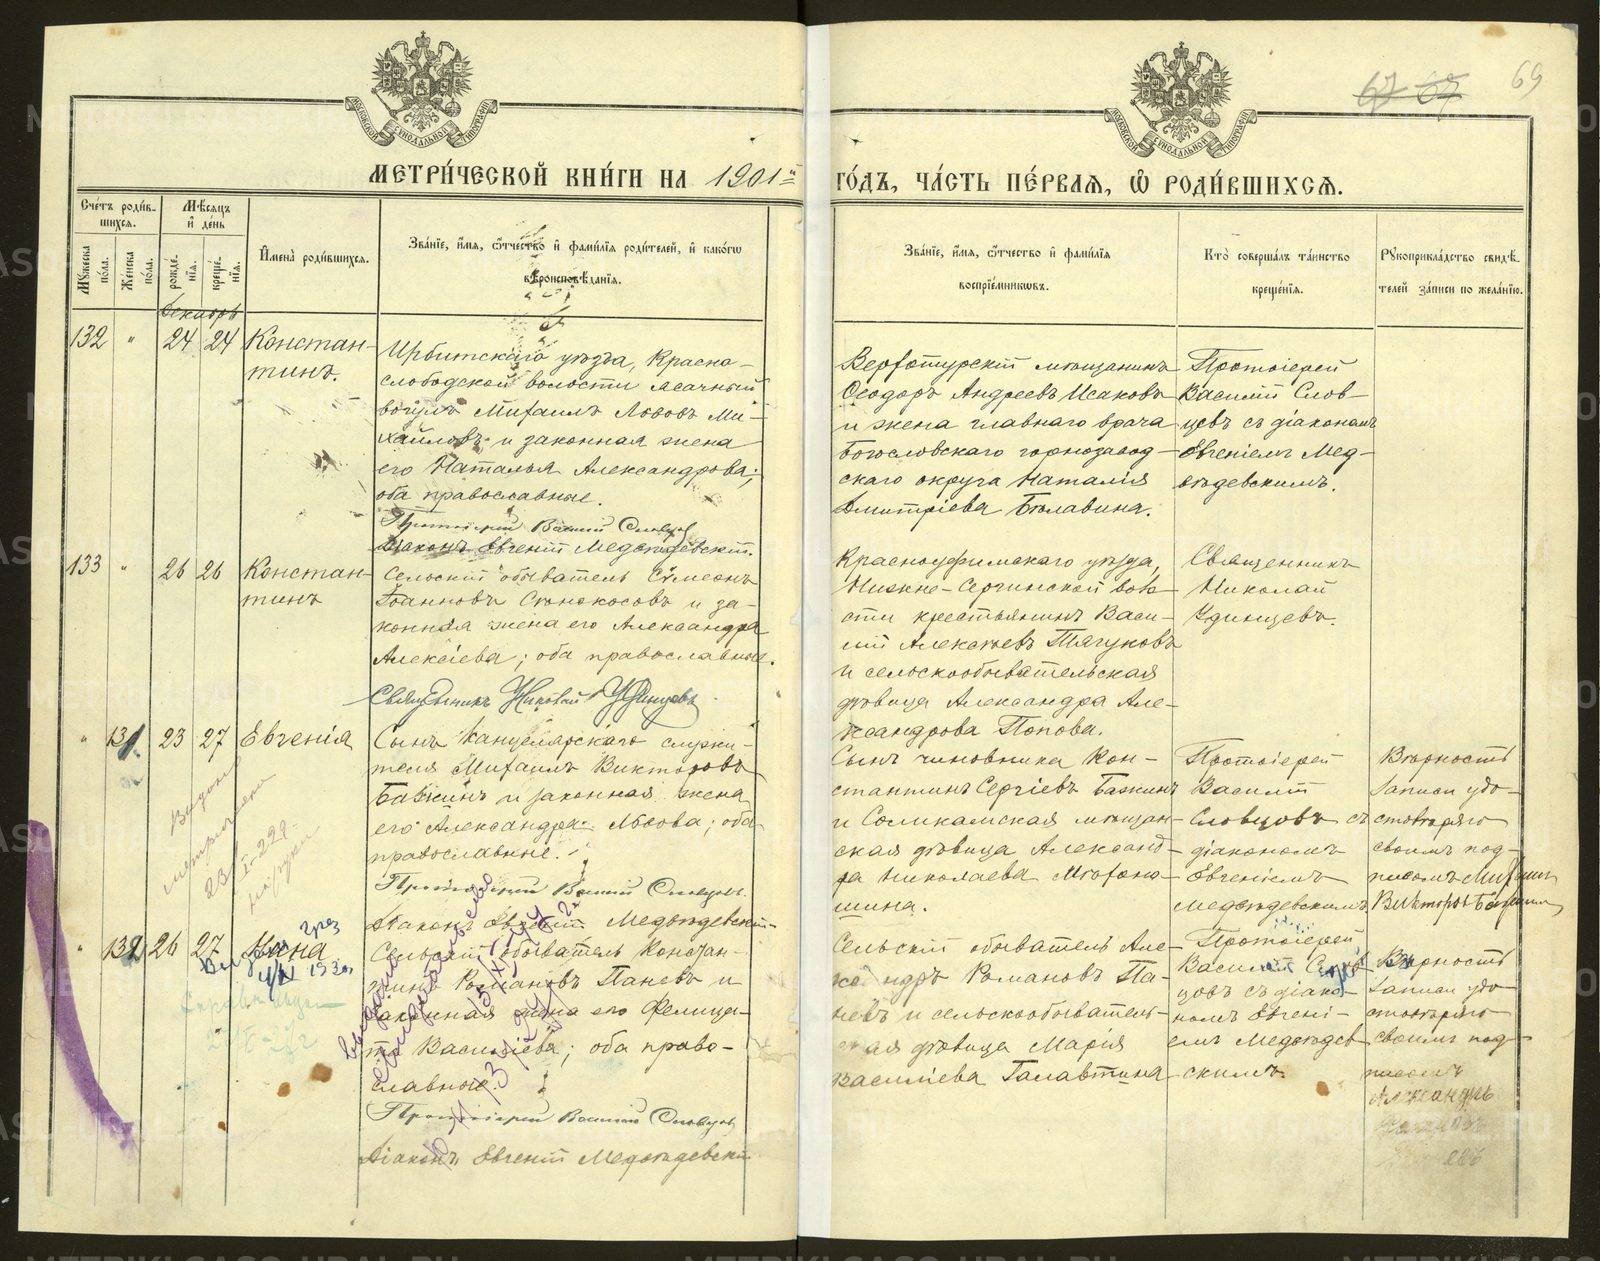 69
МЕТРИ́ЧЕСКОЙ КНИ́ГИ НА 1901й
ГО́ДЪ, ЧА́СТЬ ПЕ́РВАЯ, Ѽ РОДИ́ВШИХСЯ.
Сче́тъ роди́в-
шихся.
Му́жеска по́ла.
Же́нска по́ла.
Мѣ́сяцъ
и де́нь
рожде́нія.
креще́нія.
Имена̀ роди́вшихся.
Зва́ніе, и́мя, о́тчество и фами́лія роди́телей, и како́гѡ
вѣроисповѣ́данія.
Зва́ніе, и́мя, о́тчество и фами́лія
воспріе́мниковъ.
Кто̀ соверша́лъ та́инство
креще́нія.
Рукоприкла́дство свидѣ́-
телей за́писи по жела́нію.
Декабрь
132 " 24 24 Констан-
тинъ.
Ирбитскаго уѣзда, Красно-
слободской волости ясачный
вогулъ Михаилъ Лововъ Ми-
хайловъ и законная жена
его Наталья Александрова;
оба православные.
Протоіерей Василій Словцовъ
Діаконъ Евгеній Медвѣдевскій.
Верхотурскій мѣщанинъ
Ѳеодоръ Андреевъ Исаковъ
и жена главнаго врача
Богословскаго горнозавод-
скаго округа Наталія
Дмитріева Бѣлавина.
Протоіерей
Василій Слов-
цовъ съ діакономъ
Евгеніемъ Мед-
вѣдевскимъ.
133 " 26 26 Констан-
тинъ
Сельскій обыватель Сѵмеонъ
Іоанновъ Сѣнокосовъ и за-
конная жена его Александра
Алексіева; оба православные.
Священникъ Николай Удинцевъ
Красноуфимскаго уѣзда,
Нижне-Сергинской воло-
сти крестьянинъ Васи-
лій Алексѣевъ Тягуновъ
и сельскообывательская
дѣвица Александра Але-
ксандрова Попова.
Священникъ
Николай
Удинцевъ.
" 131 23 27 Евгенія
Сынъ канцелярскаго служи-
теля Михаилъ Викторовъ
Бажинъ и законная жена
его Александра Львова; оба
православные.
Протоіерей Василій Словцовъ.
Діаконъ Евгеній Медвѣдевскій
Сынъ чиновника Кон-
стантинъ Сергіевъ Бажинъ
и Соликамская мѣщан-
ская дѣвица Александ-
ра Николаева
Протоіерей
Василій
Словцовъ съ
діакономъ
Евгеніемъ
Медвѣдевскимъ
Вѣрность
записи удо-
стовѣряю
своимъ под-
писомъ Михаилъ
Викторовъ Бажинъ
" 132 26 27 Анна
Сельскій обыватель Констан-
тинъ Романовъ Паневъ и
законная жена его Фелица-
та Василіева; оба право-
славные.
Протоіерей Василій Словцовъ
Діаконъ Евгеній Медвѣдевскій
Сельскій обыватель Але-
ксандръ Романовъ Па-
невъ и сельскообыватель-
ская дѣвица Марія
Василіева Галавтина
Протоіерей
Василій Слов-
цовъ съ діако-
номъ Евгені-
емъ Медвѣдев-
скимъ.
Вѣрность
записи удо-
стовѣряю
своимъ под-
писомъ
Александръ